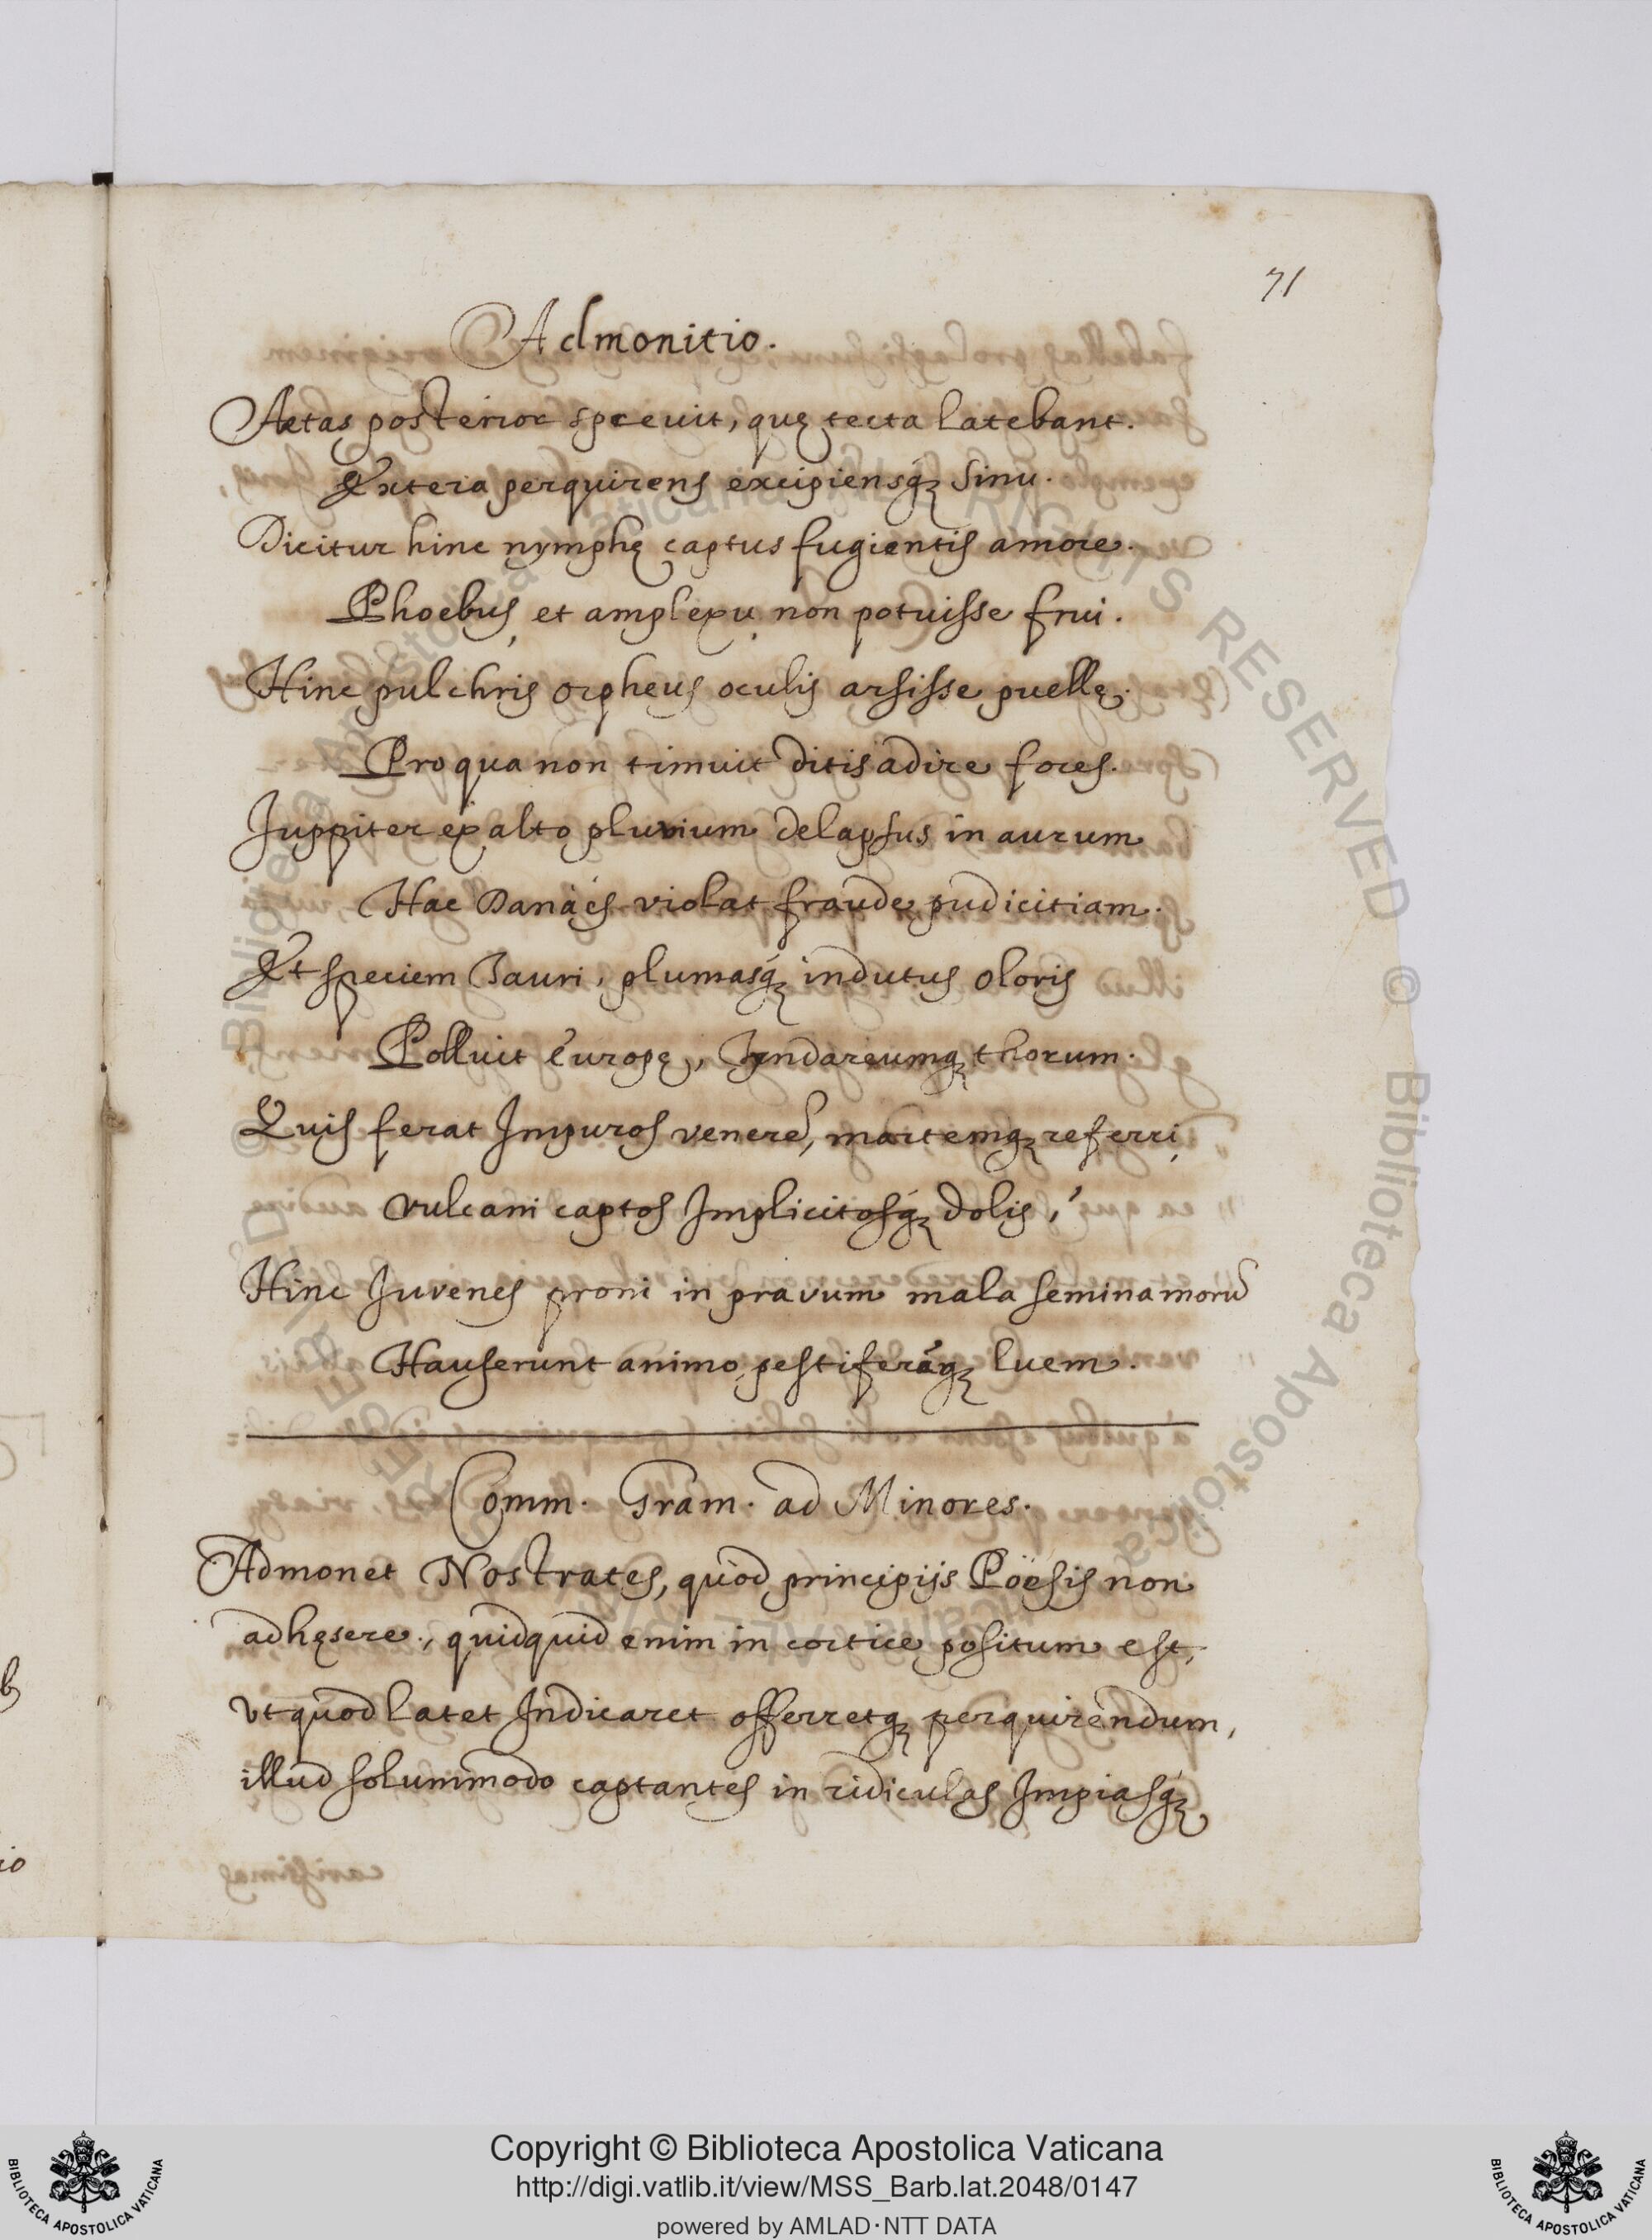 71
Admonitio.
Aetas posterior spreuit, quę tecta latebant.
Extera perquirens excipiensq́ʒ sinu.
Dicitur hinc nymphę captus fugientis amore.
Phoebus, et amplexu non potuisse frui.
Hinc pulchris orpheus oculis arsisse puellę.
Pro qua non timuit ditis adire fores.
Juppiter ex alto pluvium delapsus in aurum
Hac Danäes violat fraude pudicitiam.
Et speciem Tauri, plumasq́ʒ indutus oloris
Polluit Europę, Tyndareumqʒ thorum.
Quis ferat Impuros venerē, martemqʒ referri,
vulcani captos Implicitosq́ʒ dolis,?
Hinc Juvenes proni in pravum mala semina morū
Hauserunt animo pestiferāqʒ luem.
Comm. Gram. ad Minores.
Admonet Nostrates, quòd principijs Poësis non
adhęsere, quidquid enim in cortice positum est,
vt quod latet Indicaret offerretqʒ perquirendum,
illud solummodo captantes in ridiculas Impiasq́ʒ
Copyright © Biblioteca Apostolica Vaticana
http://digi.vatlib.it/view/MSS_Barb.lat.2048/0147
powered by AMLAD·NTT DATA
BIBLIOTECA APOSTOLICA VATICANA
BIBLIOTECA APOSTOLICA VATICANA